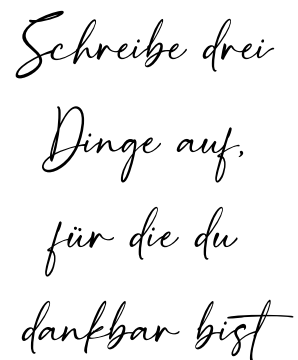 Schreibe drei
Dinge auf,
für die du
dankbar bist